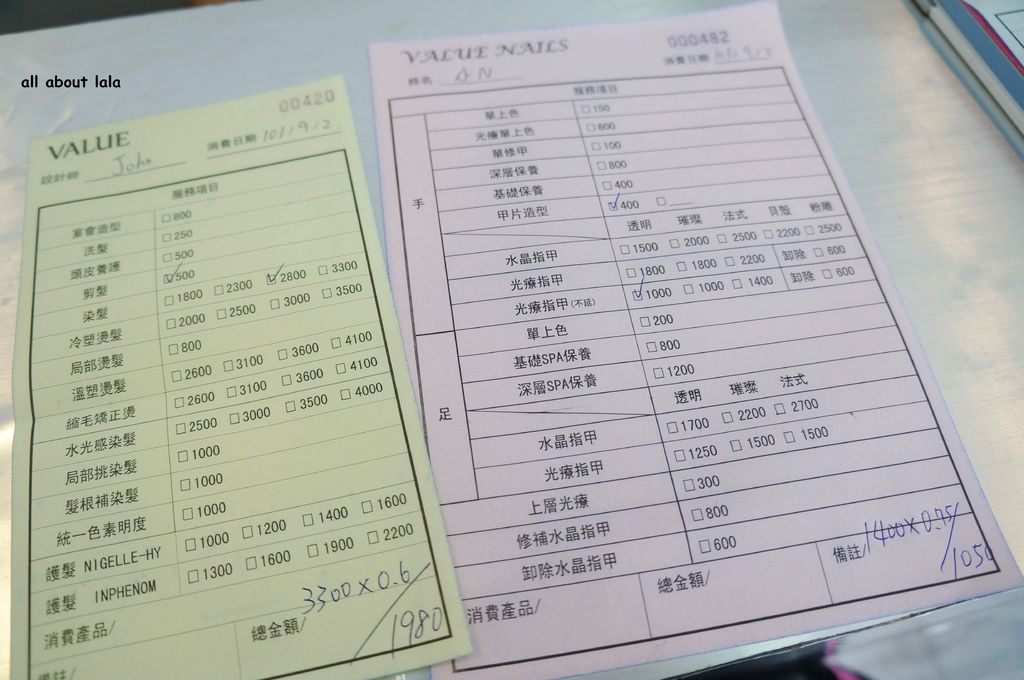 all about lala
VALUE
00420
設計師 John 消費日期 101/9/2
服務項目
宴會造型 □800
洗髮 □250
頭皮養護 □500
剪髮 ☑500
染髮 □1800 □2300 ☑2800 □3300
冷塑燙髮 □2000 □2500 □3000 □3500
局部燙髮 □800
溫塑燙髮 □2600 □3100 □3600 □4100
縮毛矯正燙 □2600 □3100 □3600 □4100
水光感染髮 □2500 □3000 □3500 □4000
局部挑染髮 □1000
髮根補染髮 □1000
統一色素明度 □1000
護髮 NIGELLE-HY □1000 □1200 □1400 □1600
護髮 INPHENOM □1300 □1600 □1900 □2200
消費產品/ 總金額/ 3300×0.6/1980
備註/
VALUE NAILS
000482
姓名 消費日期 101/9/2
服務項目
手
單上色 □150
光療單上色 □600
單修甲 □100
深層保養 □800
基礎保養 □400
甲片造型 ☑400 □
透明 璀璨 法式 貝殼 粉雕
水晶指甲 □1500 □2000 □2500 □2200 □2500
光療指甲 □1800 □1800 □2200 卸除 □600
光療指甲(不延) ☑1000 □1000 □1400 卸除 □600
足
單上色 □200
基礎SPA保養 □800
深層SPA保養 □1200
透明 璀璨 法式
水晶指甲 □1700 □2200 □2700
光療指甲 □1250 □1500 □1500
上層光療 □300
修補水晶指甲 □800
卸除水晶指甲 □600
消費產品/ 總金額/ 備註/ 1400×0.75/1050